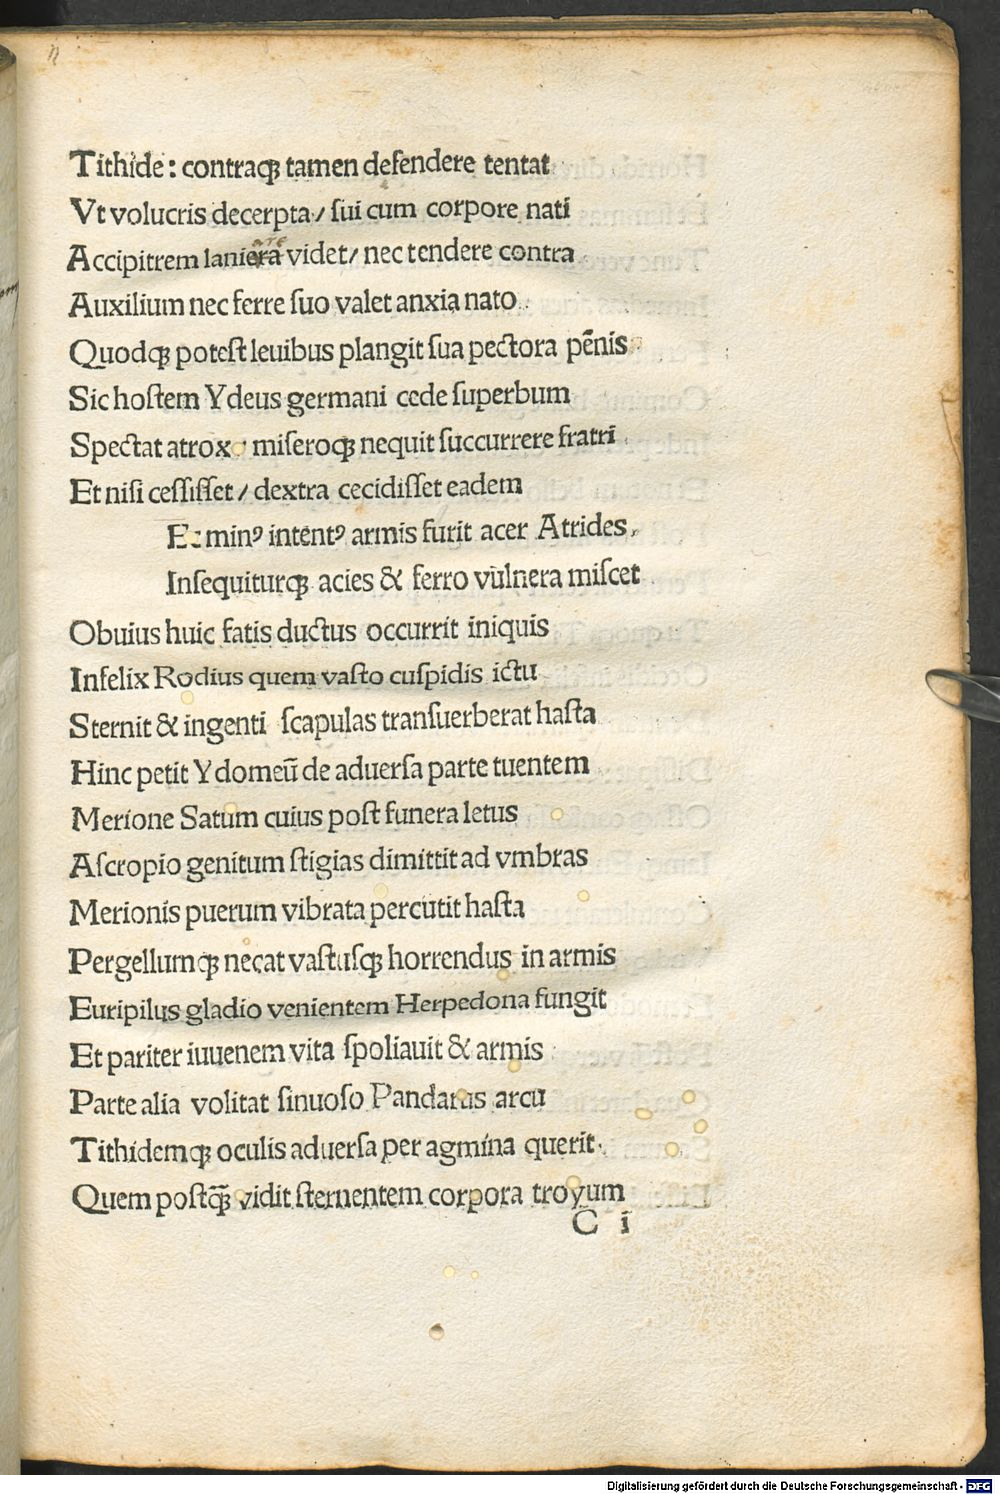 Tithide: contraqꝫ tamen defendere tentat
Vt volucris decerpta / ſui cum corpore nati
Accipitrem laniera videt / nec tendere contra
Auxilium nec ferre ſuo valet anxia nato
Quodqꝫ poteſt leuibus plangit ſua pectora pēnis
Sic hoſtem Ydeus germani cede ſuperbum
Spectat atrox miſeroqꝫ nequit ſuccurrere fratri
Et niſi ceſſiſſet / dextra cecidiſſet eadem
Eː minꝰ intentꝰ armis furit acer Atrides
Inſequiturqꝫ acies & ferro vulnera miſcet
Obuius huic fatis ductus occurrit iniquis
Infelix Rodius quem vaſto cuſpidis ictu
Sternit & ingenti ſcapulas tranſuerberat haſta
Hinc petit Ydomeū de aduerſa parte tuentem
Merione Satum cuius poſt funera letus
Aſcropio genitum ſtigias dimittit ad vmbras
Merionis puerum vibrata percutit haſta
Pergellumqꝫ necat vaſtuſqꝫ horrendus in armis
Euripilus gladio venientem Herpedona fungit
Et pariter iuuenem vita ſpoliauit & armis
Parte alia volitat ſinuoſo Pandarus arcu
Tithidemqꝫ oculis aduerſa per agmina querit
Quem poſtqꝫ̄ vidit ſternentem corpora troyum
C i
Digitalisierung gefördert durch die Deutsche Forschungsgemeinschaft - DFG